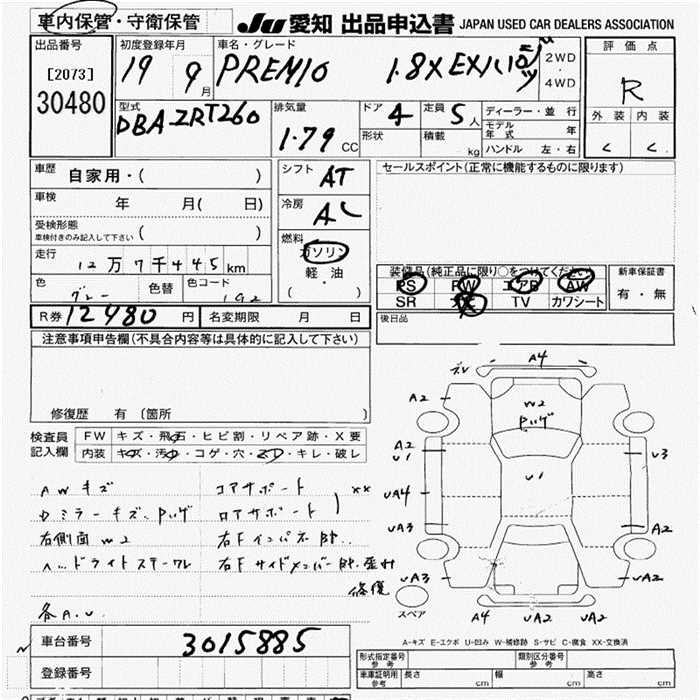 車内保管・守衛保管
JU 愛知 出品申込書 JAPAN USED CAR DEALERS ASSOCIATION
出品番号
[2073]
30480
初度登録年月
19 9月
車名・グレード
PREMIO 1.8X EX
2WD
4WD
評価点
R
外装 内装
C C
型式
DBA ZRT260
排気量
1.79 CC
ドア 4
定員 5人
形状
積載 kg
ディーラー・並行
モデル年式 年
ハンドル 左・右
車歴 自家用・( )
車検 年 月( 日)
受検形態
車検付きのみ記入して下さい ( )
走行 12万7千445km
色 グレー
色替
色コード 1G2
シフト AT
冷房 AC
燃料
ガソリン
軽・油
( ・ )
セールスポイント(正常に機能するものに限ります)
装備品(純正品に限り○をつけてください)
PS PW エアB AW
SR TV カワシート
新車保証書
有・無
後日品
R券 12480円
名変期限 月 日
注意事項申告欄(不具合内容等は具体的に記入して下さい)
修復歴 有 〔箇所 〕
検査員記入欄
FW キズ・飛石・ヒビ割・リペア跡・X要
内装 キズ・汚・コゲ・穴・・キレ・破レ
AWキズ
ドミラーキズ、Pハゲ
右側面W2
ヘッドライトステークレ
各A.U.
コアサポート
ロアサポート
XX
右Fインパネ
右Fサイドメンバー
修復
A4
A2
W2
Pハゲ
A2
U1
U1
U3
UA4
UA3
A2
UA3
UA2
スペア
A4 UA2 UA2
A-キズ E-エクボ U-凹み W-補修跡 S-サビ C-腐食 XX-交換済
車台番号 3015885
登録番号
形式指定番号
参考
類別区分番号
参考
車庫証明用
参考
長さ cm 幅 cm 高さ cm